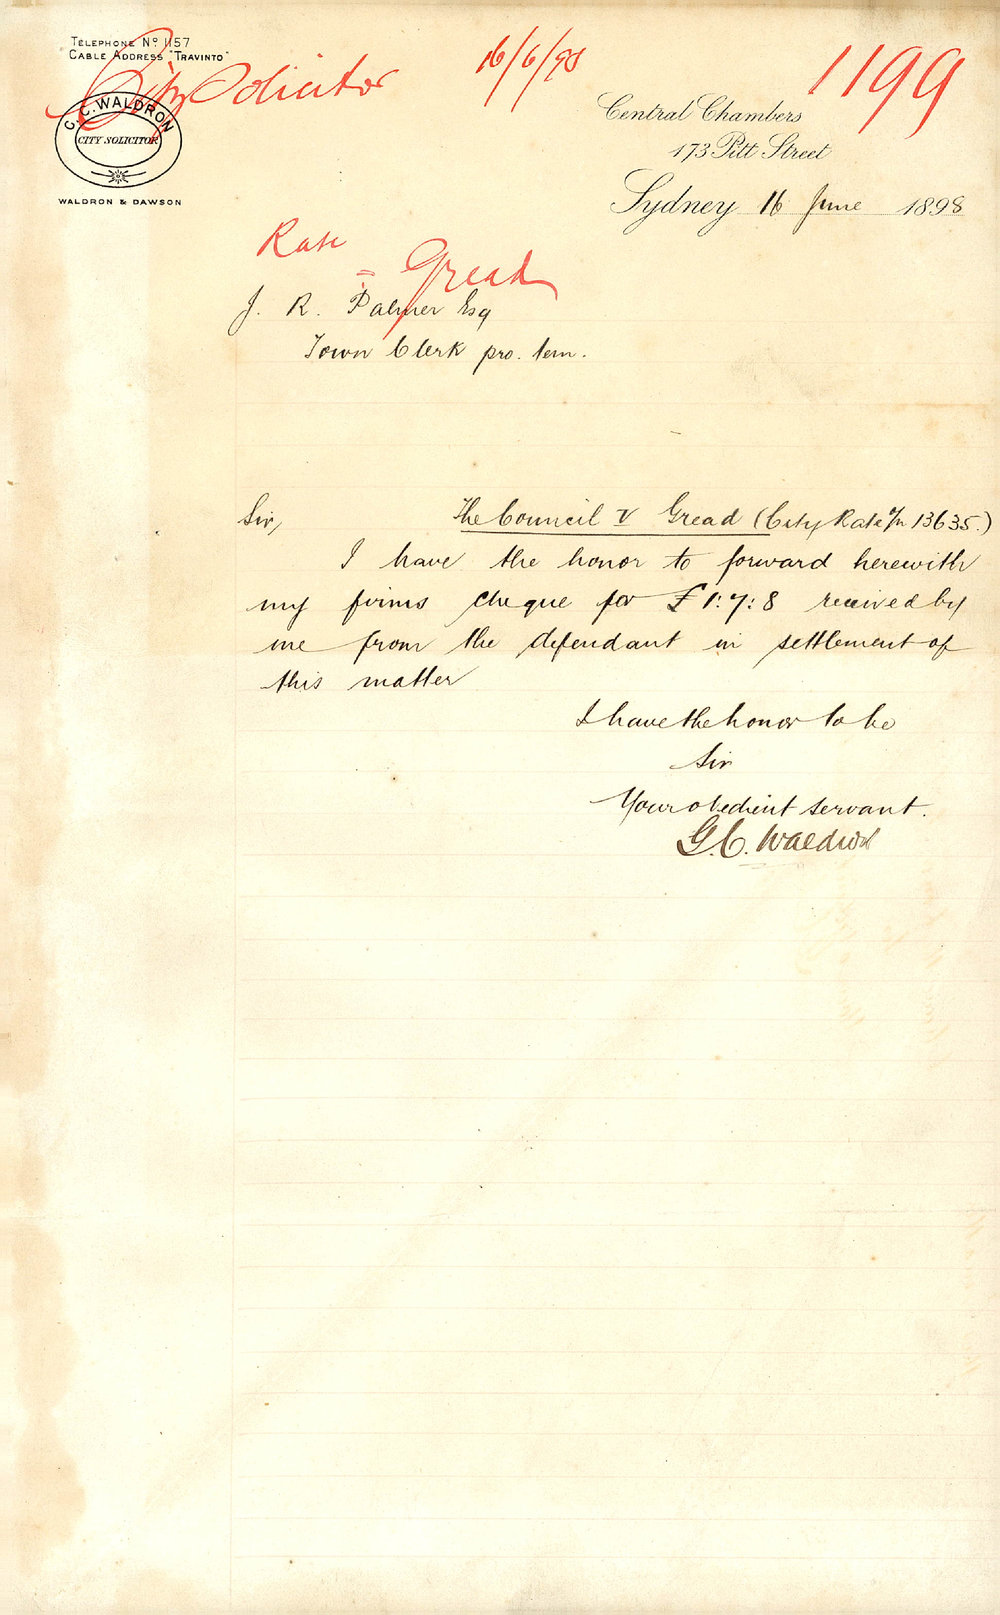 TELEPHONE No 1157
CABLE ADDRESS "TRAVINTO"
City Solicitor
16/6/98
1199
G.C. WALDRON
CITY SOLICITOR
WALDRON & DAWSON
Central Chambers
173 Pitt Street
Sydney 16 June 1898
Rate
= Gread
J. R. Palmer Esq
Town Clerk pro. tem.
Sir, The Council v Gread (City Rate a/n 13635.)
I have the honor to forward herewith
my firms cheque for £1:7:8 received by
me from the defendant in settlement of
this matter
I have the honor to be
Sir
Your obedient servant.
G.C. Waldron